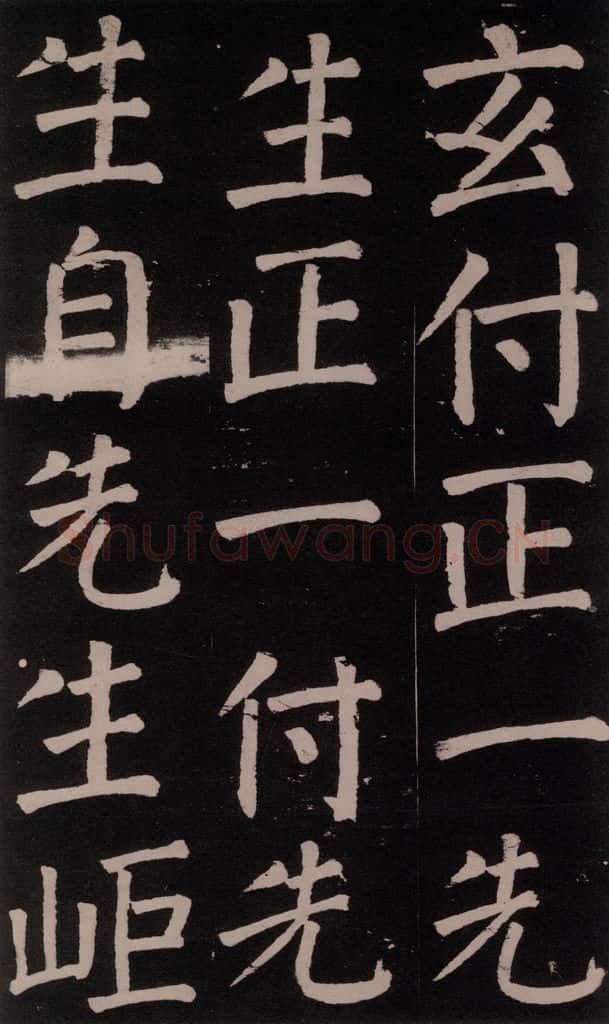 玄付正一先
生正一付先
生自先生岠
Shufawang.CN